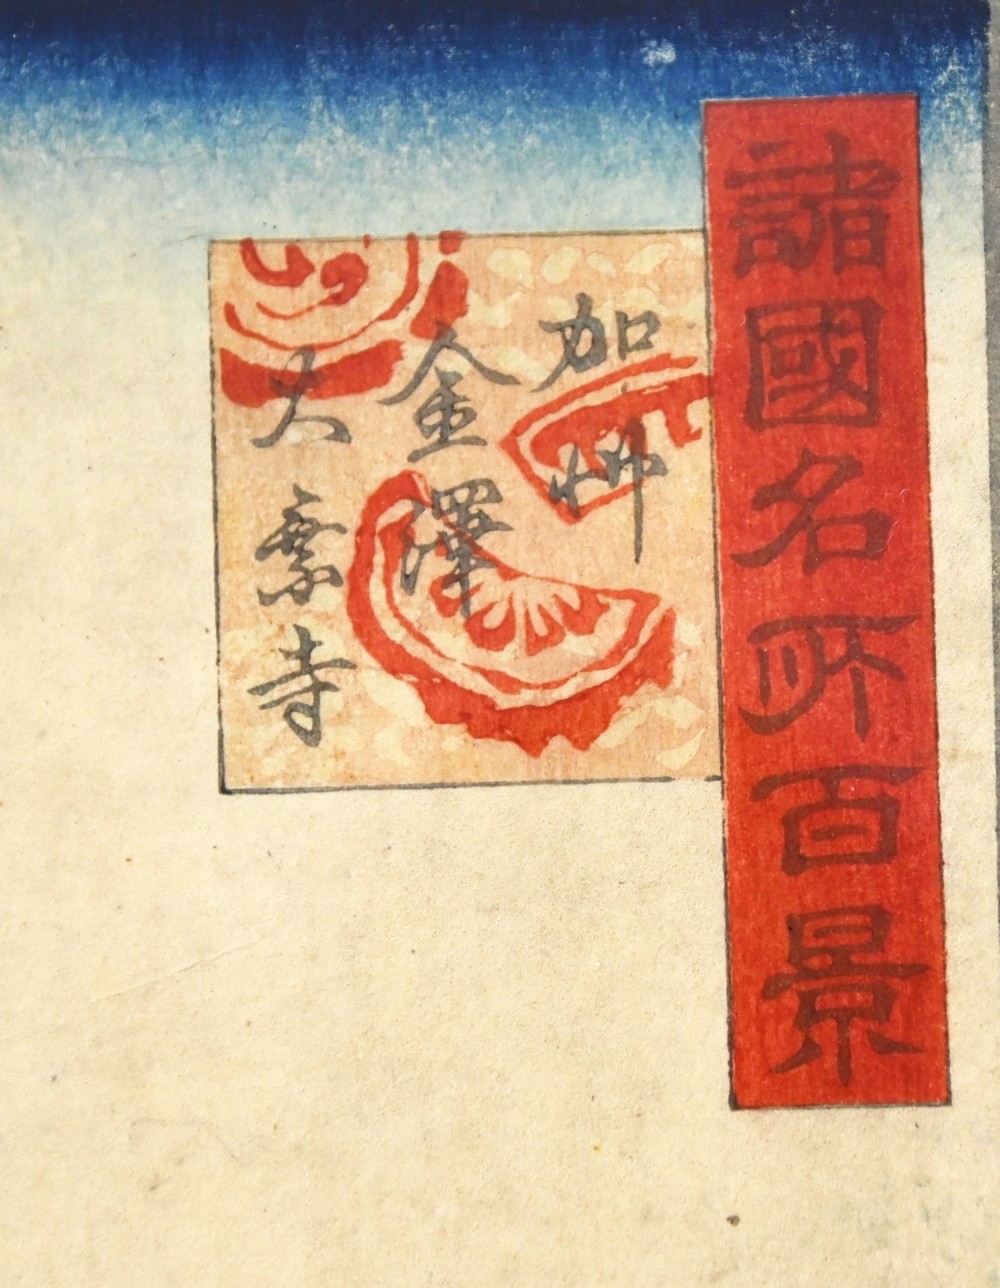 諸國名所百景
加州
金澤
大乘寺